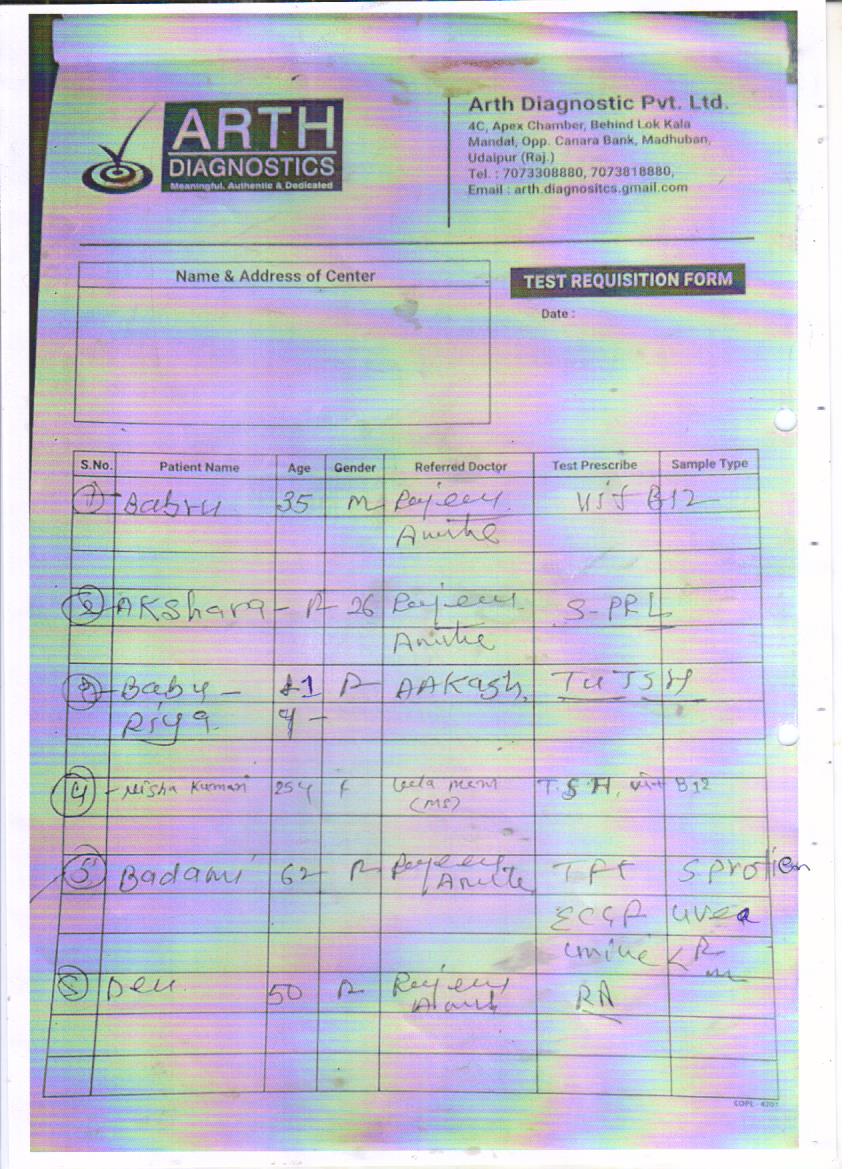 ARTH
DIAGNOSTICS
Meaningful, Authentic & Dedicated
Arth Diagnostic Pvt. Ltd.
4C, Apex Chamber, Behind Lok Kala
Mandal, Opp. Canara Bank, Madhuban,
Udaipur (Raj.)
Tel. : 7073308880, 7073818880,
Email : arth.diagnositcs.gmail.com
Name & Address of Center
TEST REQUISITION FORM
Date :
S.No. Patient Name Age Gender Referred Doctor Test Prescribe Sample Type
1 Babru 35 M Rajeev Vit B12
Akshara - 26 Rajeev S-PRL
Baby - AAKash, TSH
Riya
4 - Nisha Kumari 25y F TSH, Vit B12
(MS)
5 Badami 62 Rajeev S protien
Urea
50 Rajeev RA
COPL - 4201